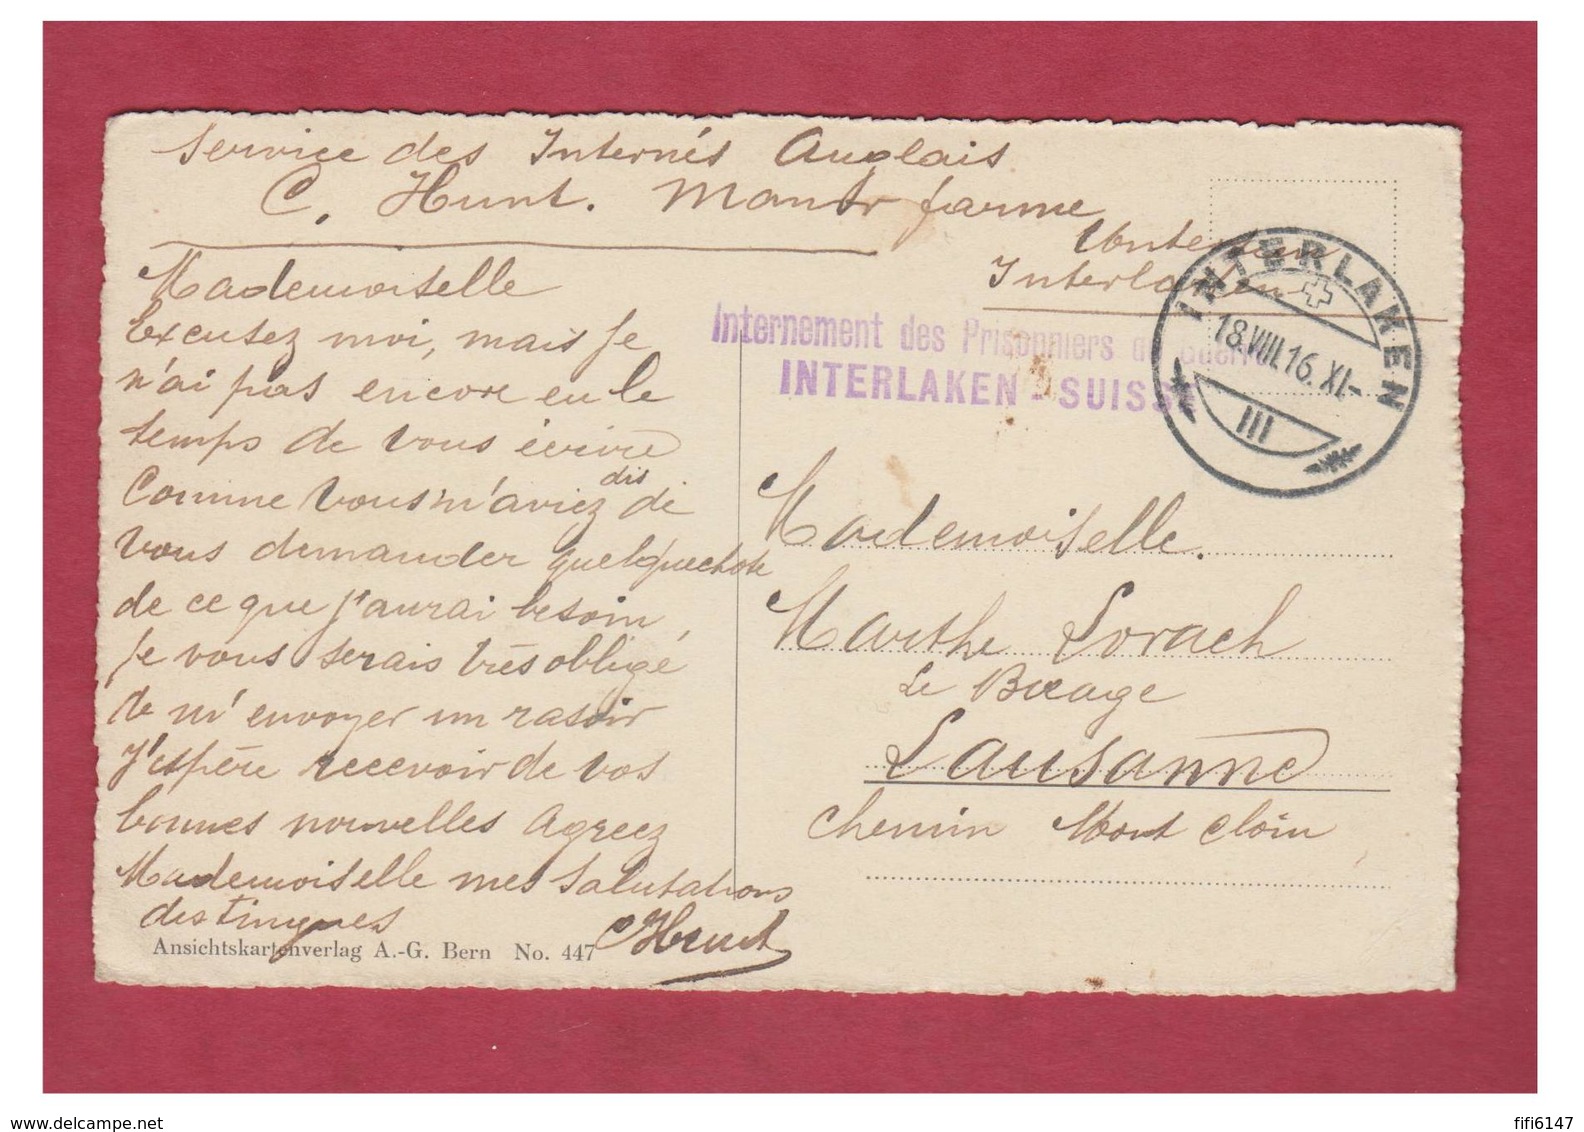 Service des Internés Anglais
C. Hunt. farme
Interlaken
Mademoiselle
Excusez moi, mais Je
n'ai pas encore eu le
temps de vous écrire
dis
Comme vous m'aviez de
vous demander quelquechose
de ce que j'aurai besoin,
Je vous serais très obligé
de m'envoyer un rasoir
J'espère recevoir de vos
bonnes nouvelles Agreez
Mademoiselle mes salutations
distingues CHunt
Ansichtskartenverlag A.-G. Bern No. 447
Internement des Prisonniers de Guerre
INTERLAKEN - SUISSE
INTERLAKEN
18.VIII.16.XI-
III
Mademoiselle.
Marthe Lorach
Le Bocage
Lausanne
Chemin Mont
www.delcampe.net
fifi6147